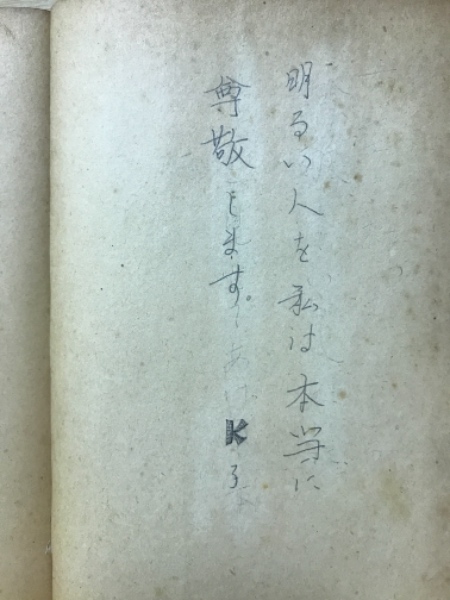 明るい人を私は本当に
尊敬します。
K